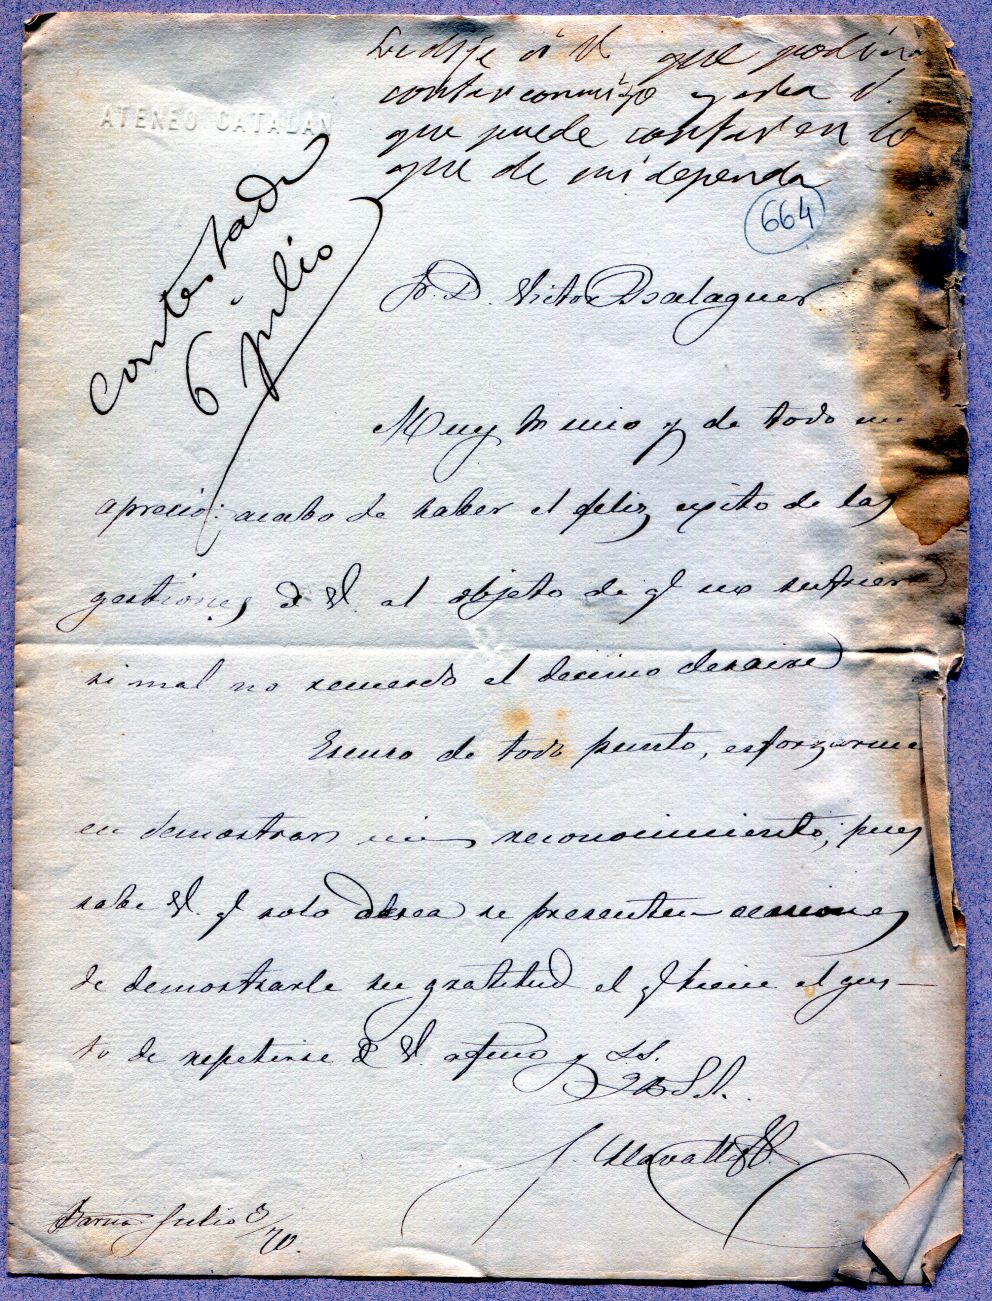 Le dije á V. que podia
contar conmigo y ahora V.
que puede contar en lo
que de mi dependa
ATENEO CATALAN
contestada
6 julio
664
Sr. D. Victor Balaguer
Muy Sr mio y de todo mi
aprecio: acabo de saber el feliz exito de las
gestiones de V. al objeto de q no sufriera
si mal no recuerdo el decimo desaire
Escuso de todo punto, esforzarme
en demostrar mi reconocimiento; pues
sabe V. q solo desea se presenten ocasiones
de demostrarle su gratitud el q tiene el gus-
to de repetirse de V. afmo y S.S.
Q B S M.
Barna Julio 3/70.